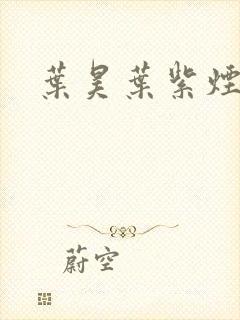 葉昊葉紫煙
蔚空